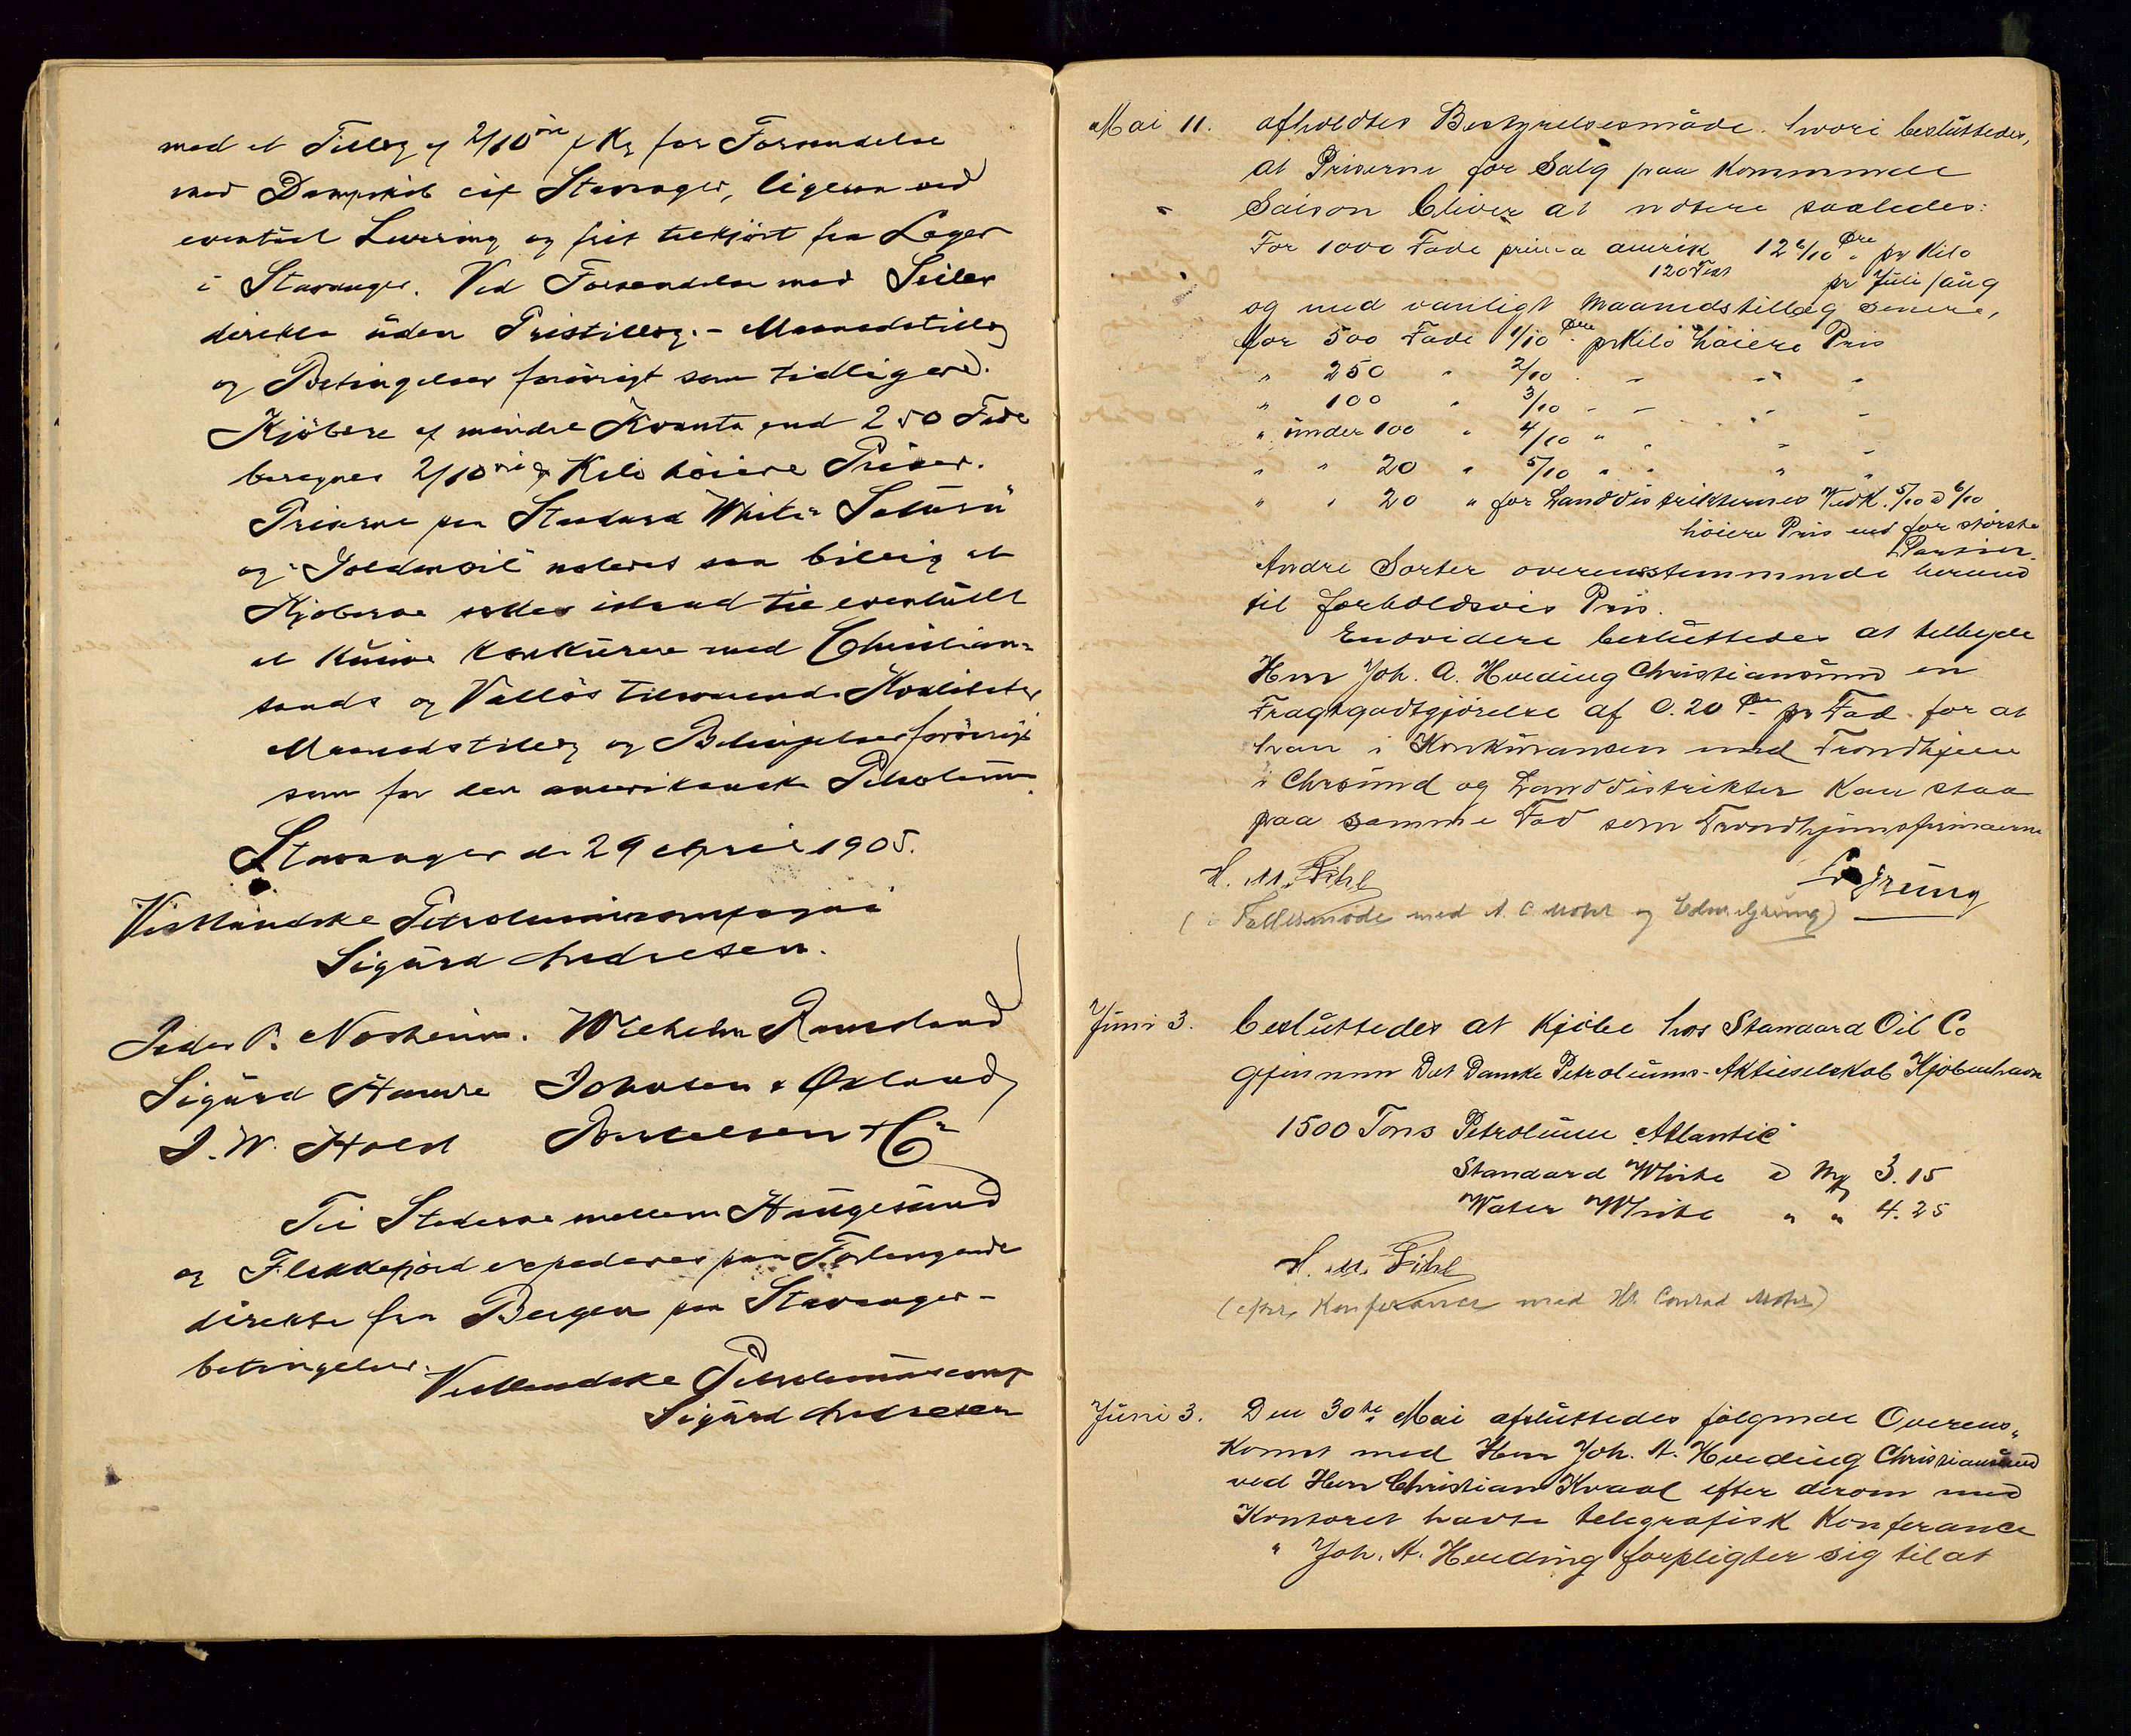 med et Tillæg af 2/10 øre p Kg for Forsendelse
med Dampskib cif Stavanger, ligesom ved
eventuel Levering og frit tilkjørt fra Lager
i Stavanger. Ved Forsendelse med Seiler
direkte uden Pristillæg. - Maanedstillæg
og Betingelser forøvrigt som tidligere.
Kjøbere af mindre Kvanta end 250 Fade
beregnes 2/10 øre pr Kilo høiere Priser.
Priserne paa Standard White "Saturn"
og "Goldenoil" noteres saa billig at
Kjøberne sættes istand til eventuelt
at kunne konkurere med Christian-
sands og Valløs tilsvarende Kvaliteter
Maanedstillæg og Betingelser forøvrigt
som for den amerikanske Petroleum.
Stavanger den 29 April 1905.
Vestlandske Petroleumscompagni
Sigurd Andresen.
Peder P. Norheim. Wilhelm Ramsland
Sigurd Hamre Johnsen & Øxland
J. W. Holst Bertelsen & Co
Til Stederne mellem Haugesund
og Flekkefjord expederes paa Forlangende
direkte fra Bergen paa Stavanger-
betingelser. Vestlandske Petroleumscomp
Sigurd Andresen
Mai 11. afholdtes Bestyrelsesmøde. hvori besluttedes,
at Priserne for Salg paa kommende
Saison bliver at notere saaledes:
For 1000 Fade prima amerik 12 6/10 Øre pr Kilo
120 Test pr Juli/aug
og med vanligt Maanedstillæg senere,
for 500 Fade 1/10 Øre pr Kilo høiere Pris
" 250 " 2/10 " " " "
" 100 " 3/10 " " " "
" under 100 " 4/10 " " " "
" " 20 " 5/10 " " " "
" " 20 " for Landdistrikternes Vedk. 5/10 à 6/10
høiere Pris end for største
Partier.
Andre Sorter overensstemmende hermed
til forholdsvis Pris.
Endvidere besluttedes at tilbyde
Herr Joh. A. Hveding Christiansund en
Fragtgodtgjørelse af 0.20 Øre pr Fad. for at
han i Konkurancen med Trondhjem
i Chrsund og Landdistrikter kan staa
paa samme Fod som Trondhjemsfirmaerne
H. M. Fihl Grung
(i Fællesmøde med A. C. Mohr og Edm. Grung)
Juni 3. besluttedes at kjøbe hos Standard Oil Co
gjennem Det Danske Petroleums-Aktieselskab Kjøbenhavn
1500 Tons Petroleum "Atlantic"
Standard White à Mk 3.15
Water White " " 4.25
H. M. Fihl
(efter Konferance med Hr. Conrad Mohr)
Juni 3. Den 30te Mai afsluttedes følgende Overens-
komst med Herr Joh. A. Hveding Christiansund
ved Herr Christian Kvaal efter derom med
Kontoret havte telegrafisk Konferance
" Joh. A. Hveding forpligter sig til at